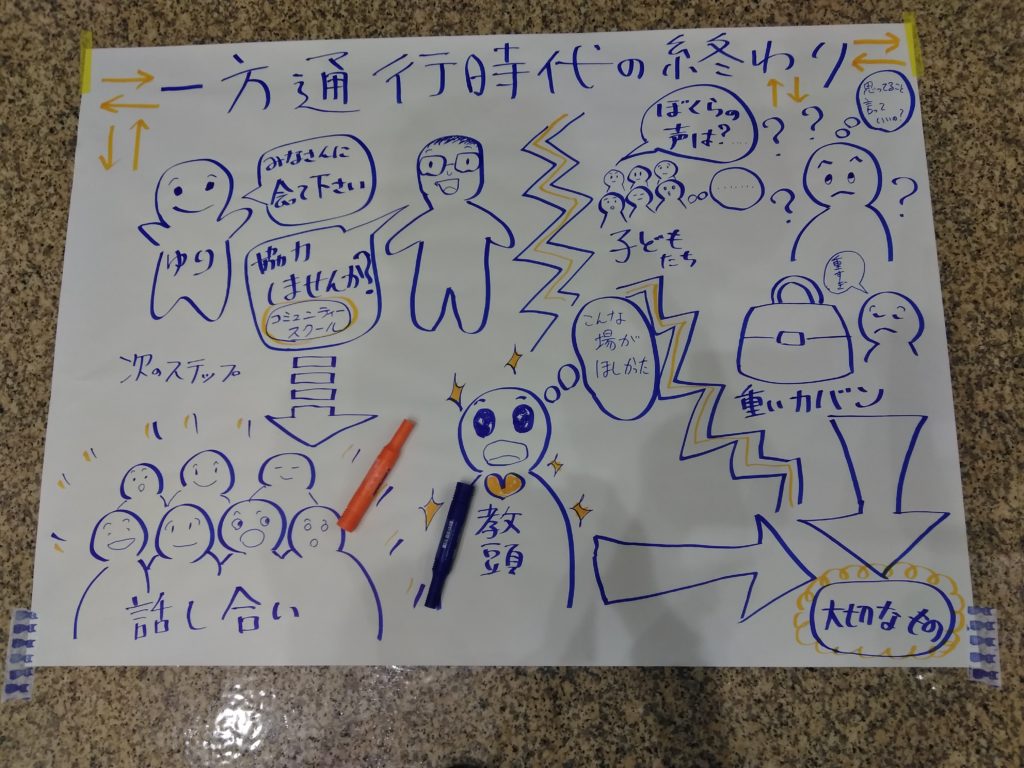 一方通行時代の終わり
みなさんに
会って下さい
ゆり
協力
しませんか?
コミュニティー
スクール
ぼくらの
声は?....
........
子ども
たち
?
?
思ってること
言って
いいの?
?
?
重すぎ
重いカバン
次のステップ
こんな
場が
ほしかった
教
頭
話し合い
大切なもの